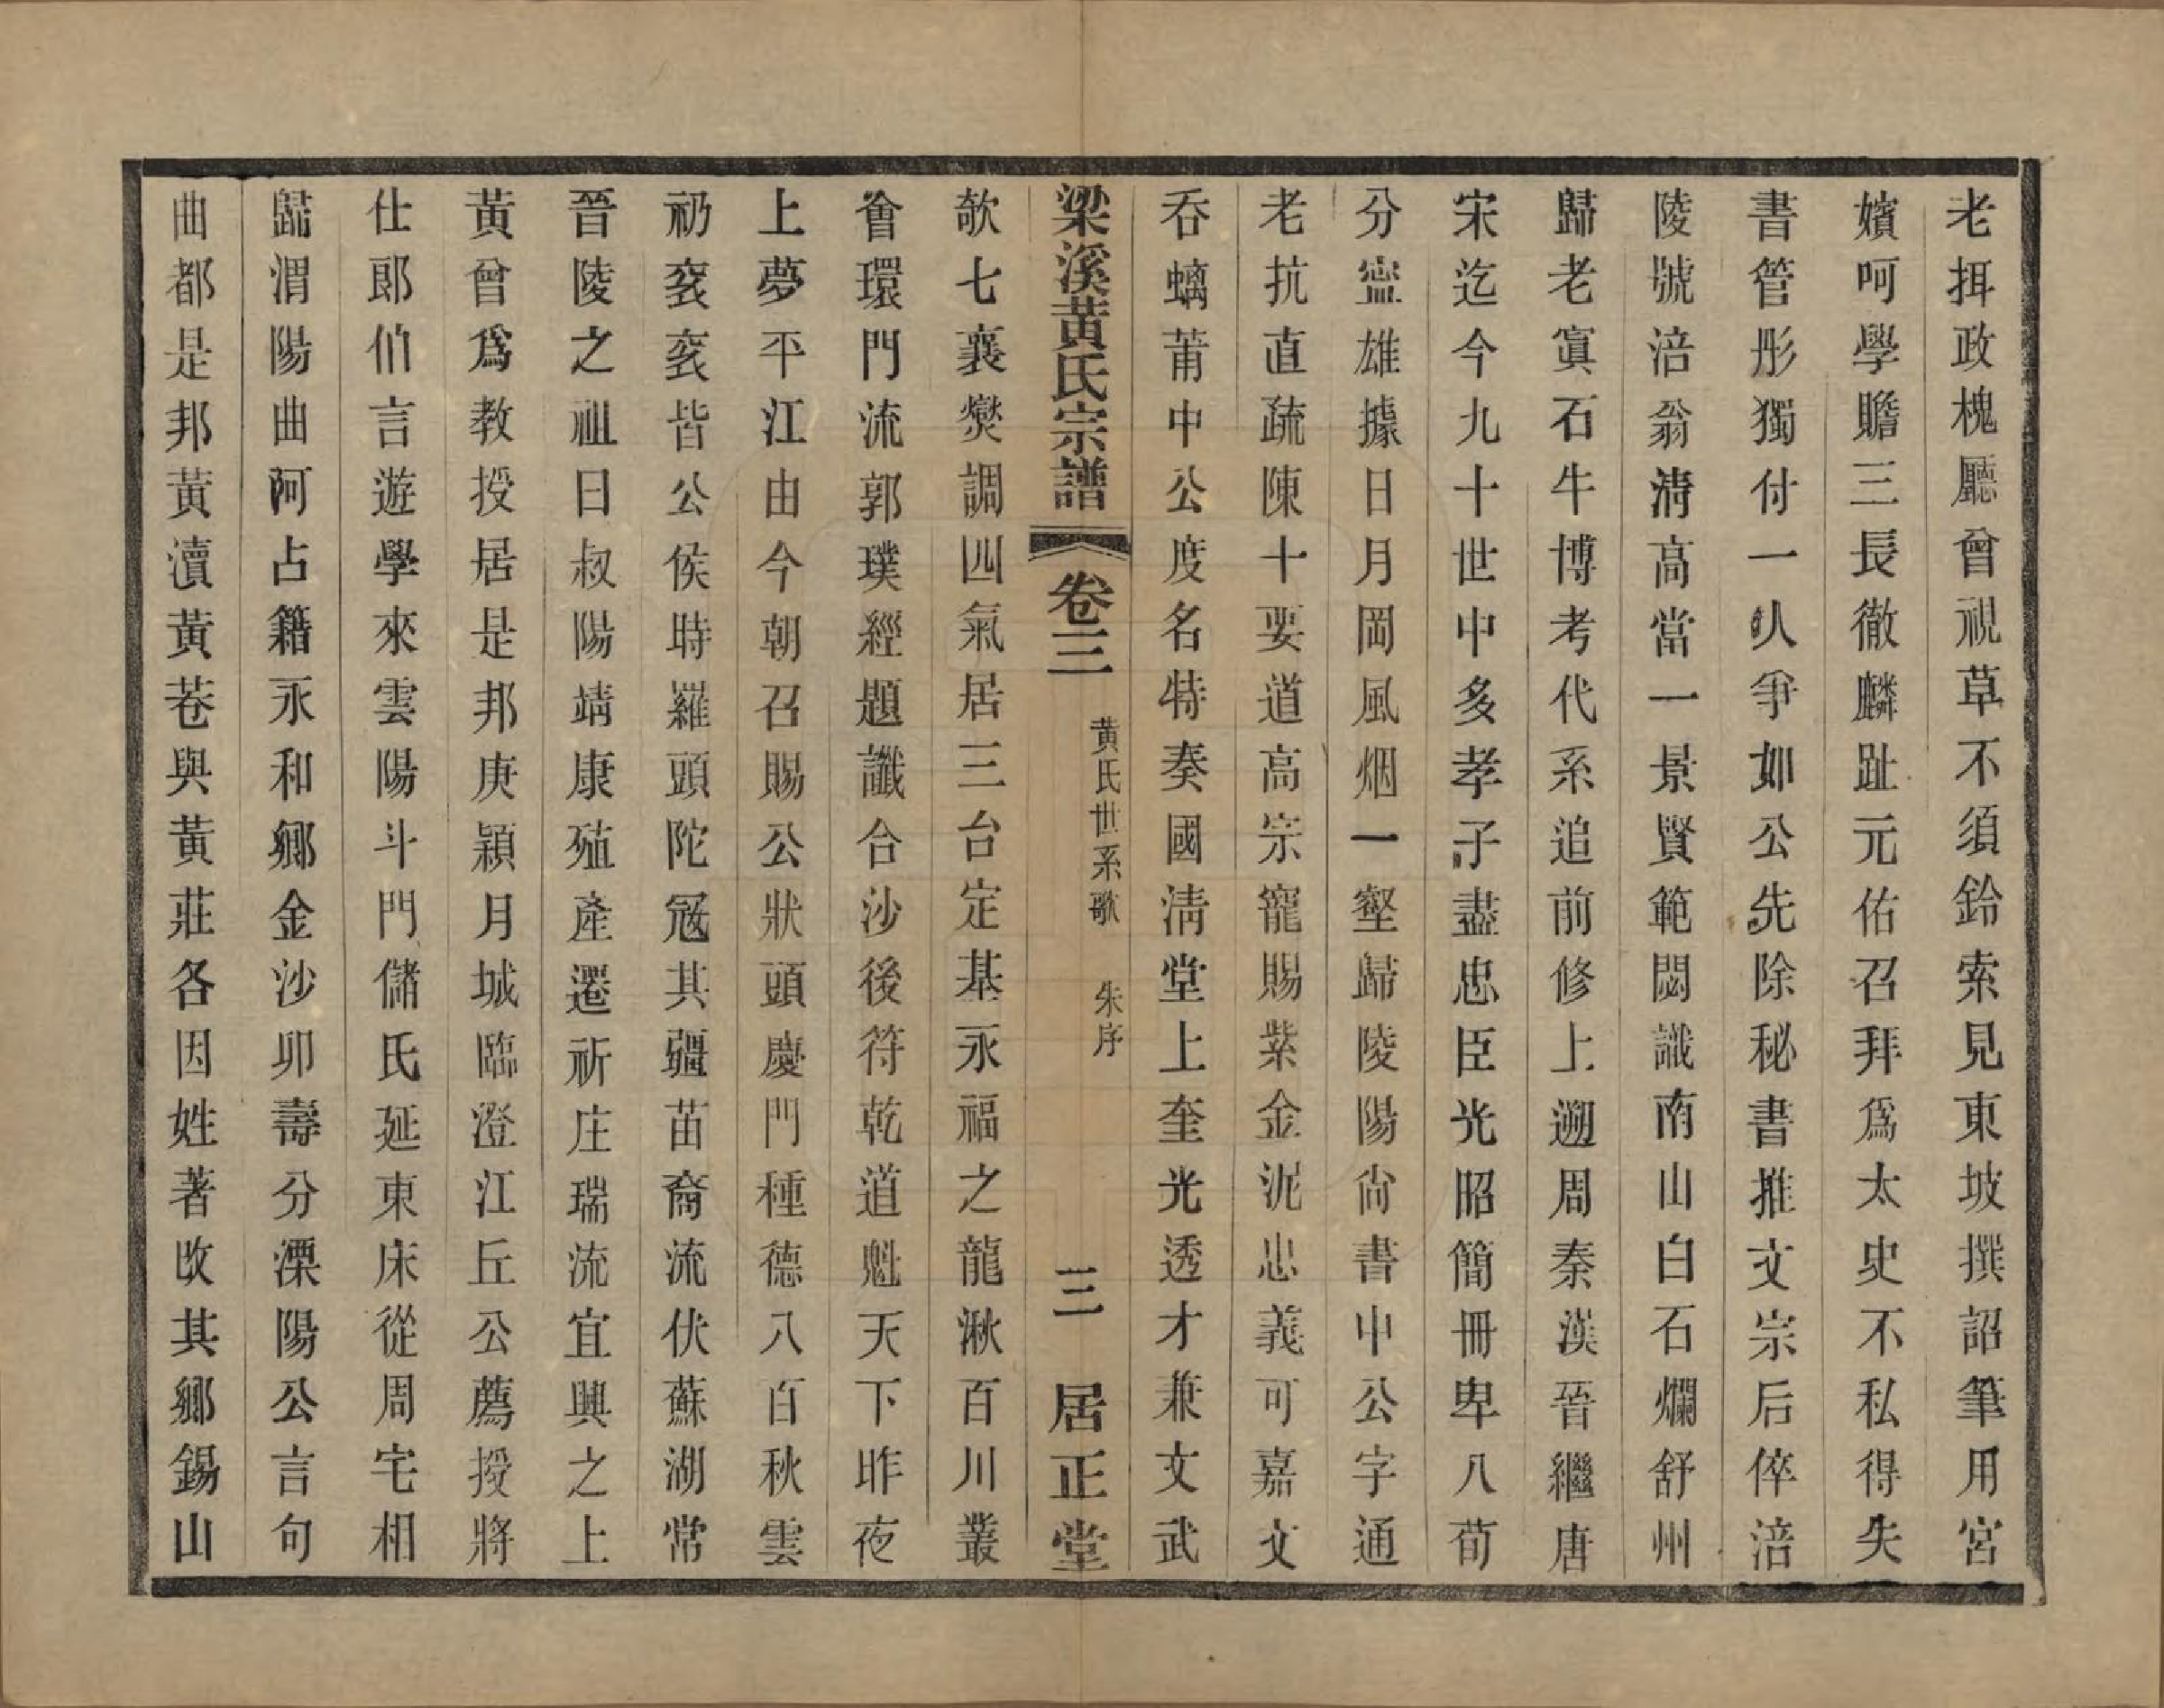 老挕政槐廳曾視草不須鈴索見東坡撰詔筆用宮
嬪呵學贍三長徹麟趾元佑召拜爲太史不私得失
書管彤獨付一人爭如公先除秘書推文宗后倅涪
陵號涪翁清高當一景賢範閟識南山白石爛舒州
歸老寘石牛博考代系追前修上遡周秦漢晉繼唐
宋迄今九十世中多孝子盡忠臣光昭簡冊卑八荀
分寍雄據日月岡風烟一壑歸陵陽尙書中公字通
老抗直疏陳十要道高宗寵賜紫金泥忠義可嘉文
吞螭莆中公度名特奏國淸堂上奎光透才兼文武
梁溪黃氏宗譜 卷三 黃氏世系歌 朱序 三 居正堂
欹七襄爕調四氣居三台定基永福之龍湫百川叢
會環門流郭璞經題讖合沙後符乾道魁天下昨夜
上夢平江由今朝召賜公狀頭慶門種德八百秋雲
礽袞袞皆公侯時羅頭陀冠其疆苗裔流伏蘇湖常
晉陵之祖曰叔陽靖康殖產遷祈庄瑞流宜興之上
黃曾爲教授居是邦庚穎月城臨澄江丘公薦授將
仕郎伯言遊學來雲陽斗門儲氏延東床從周宅相
歸渭陽曲阿占籍永和鄉金沙卯壽分溧陽公言句
曲都是邦黃瀆黃巷與黃莊各因姓著改其鄉錫山